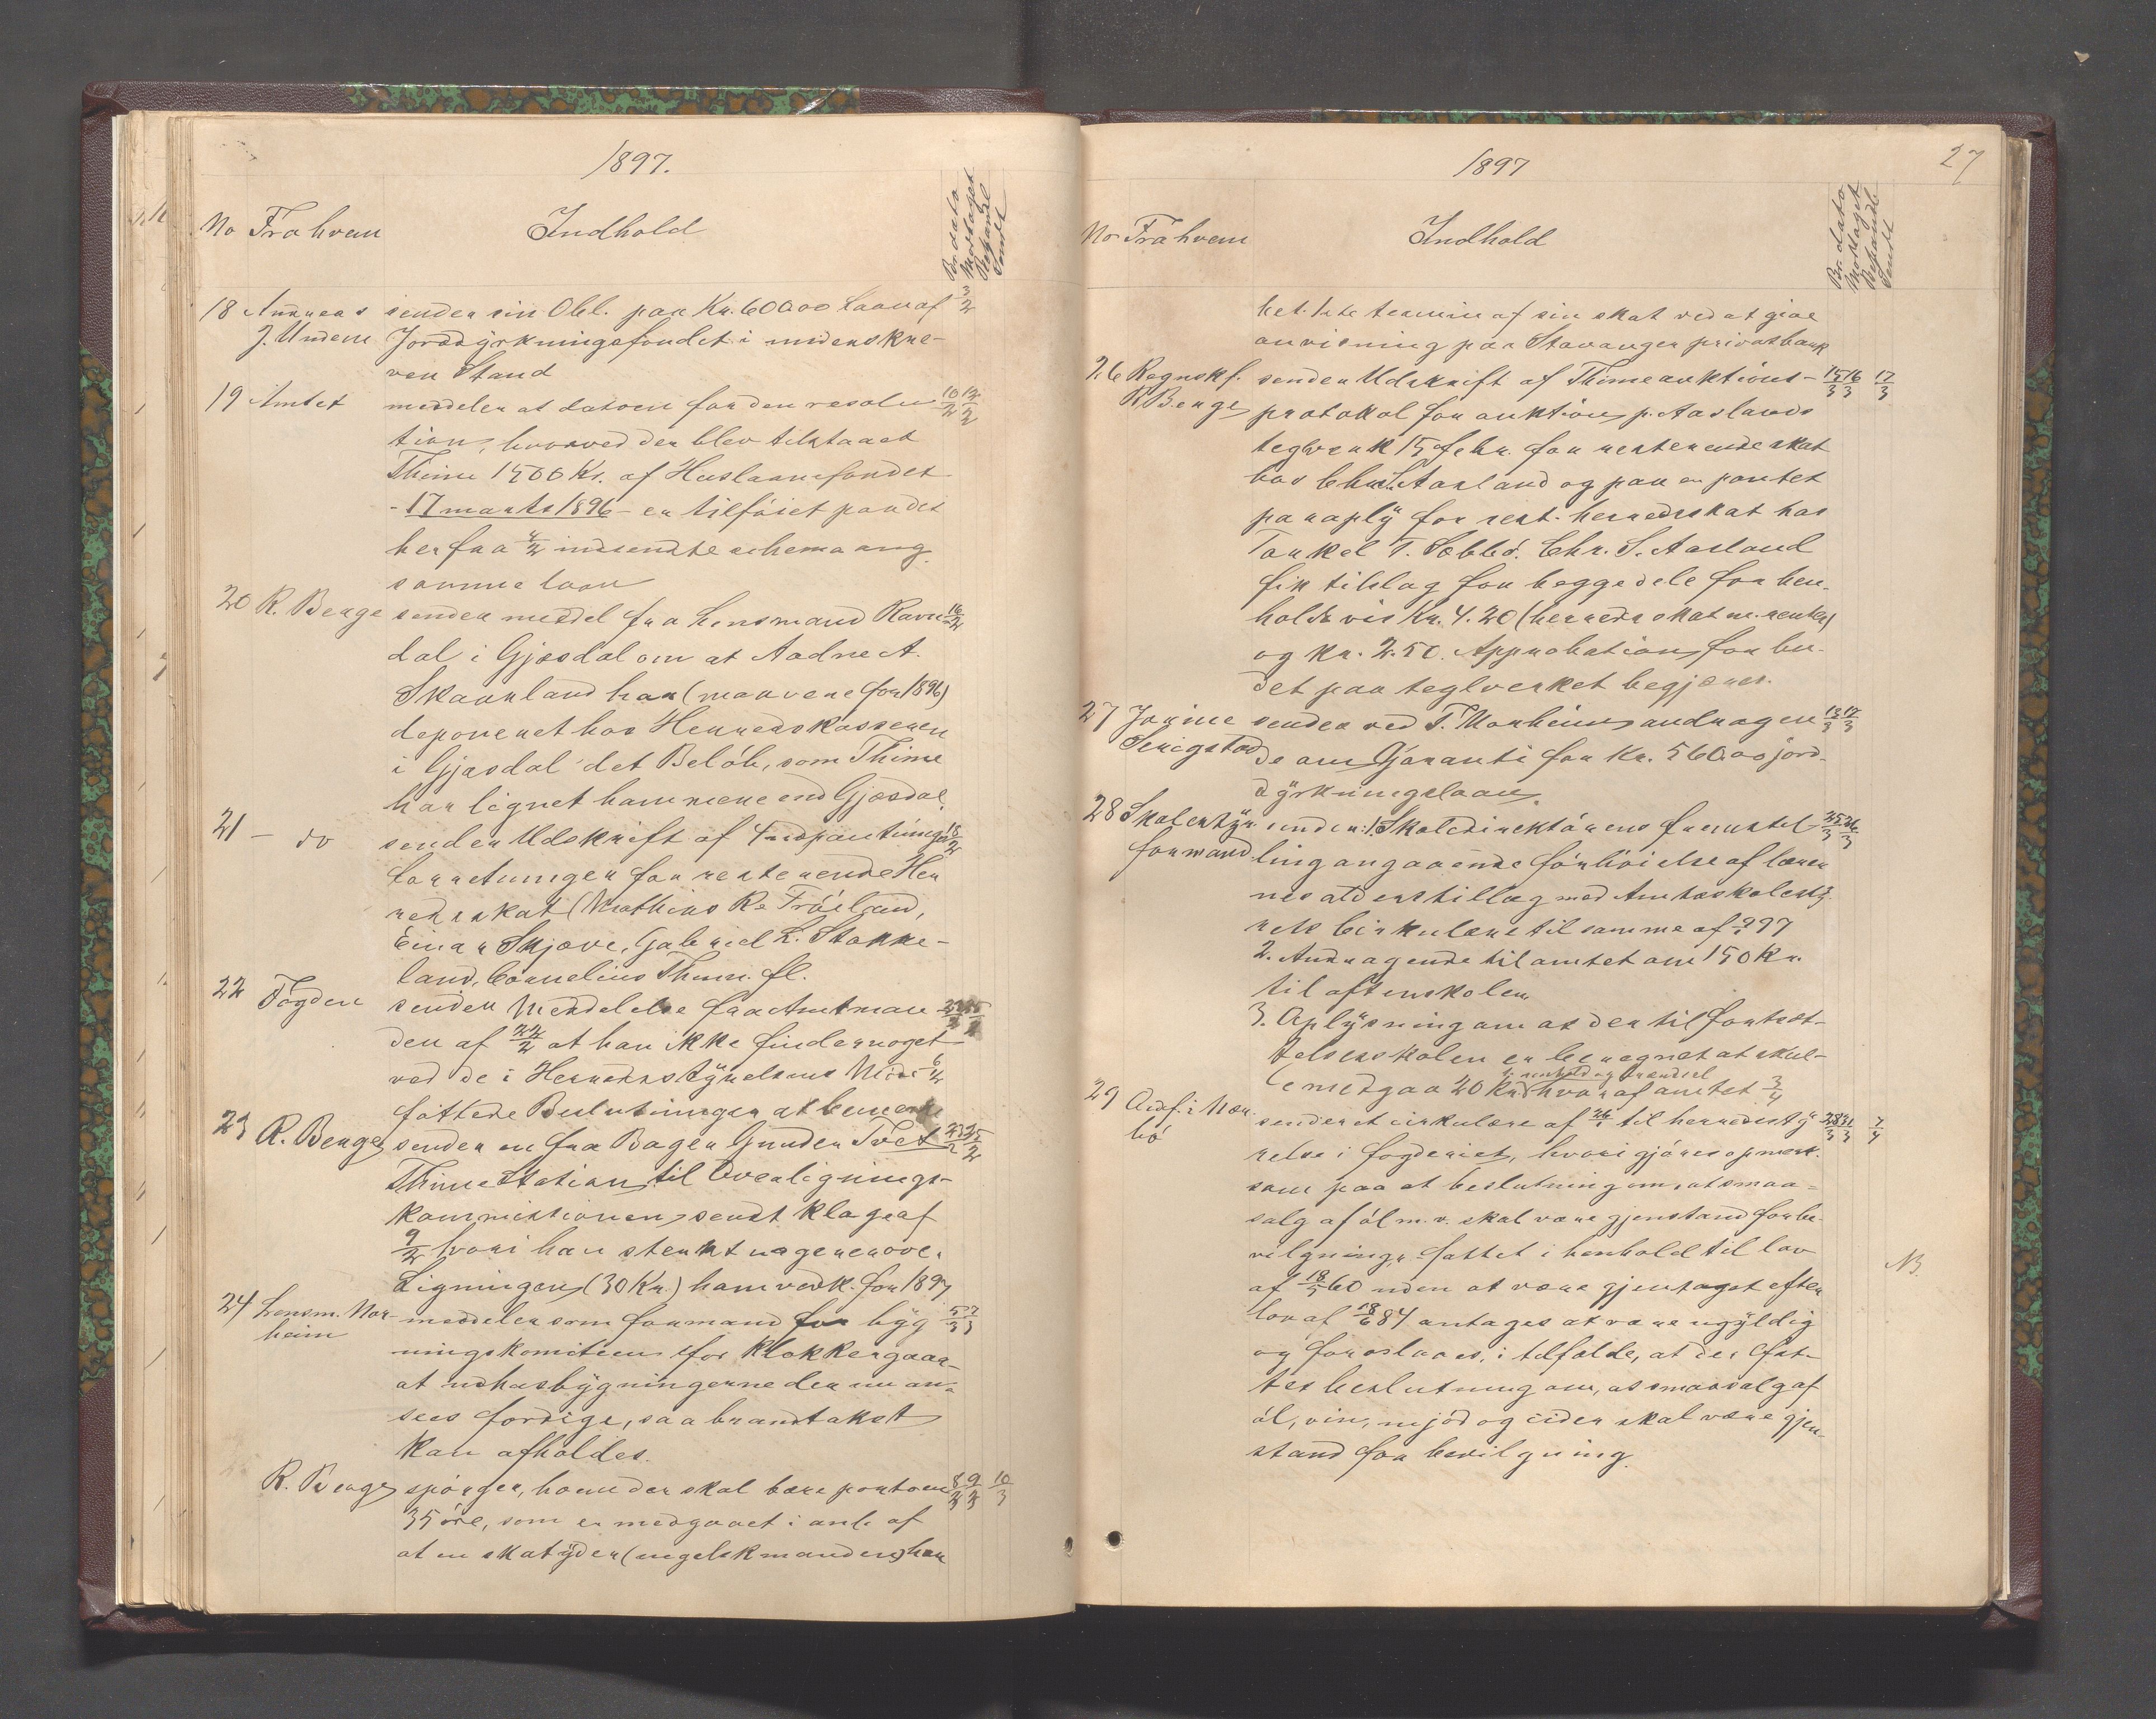 1897.
No Fra hvem Indhold Br. dato Modtaget Besvaret Sendt
18 Andreas sender sin Obl. paa Kr. 600.00 Laan af 3/2
J. Undem Jorddyrkningsfondet i underskre-
ven Stand
19 Amtet meddeler at datoen for den resolu 10/2 12/2
tion, hvorved der blev tilstaaet
Thime 1500 Kr. af Huslaanefondet
- 17 marts 1896 - er tilföiet paa det
her fra 4/2 indsendte schema ang.
samme laan
20 R. Berge sender meddel fra Lensmand Ravn 16/2
dal i Gjesdal om at Aadne A.
Skaarland har (maa være for 1896)
deponeret hos Herredskasseren
i Gjesdal det Belöb, som Thime
har lignet ham mere end Gjesdal.
21 - do sender Udskrift af 4 udpantnings 18/2
forretninger for resterende Her
redsskat (Mathias R. Fröiland,
Einar Skjæve, Gabriel L. Stokke-
land, Cornelius Thu m. fl.
22 Fogden sender Meddelelse fra Amtman
den af 22/2 at han ikke finder noget
ved de i Herredsstyrelsens Möde 6/2
fattede Beslutninger at bemerke
23 R. Berge sender en fra Bager Gunder Tvet 23/2 25/2
Thime Station til Overlignings-
kommissionen sendt klage af
9/2 hvori han sterkt nagererove.
Ligningen (30 Kr.) ham vedk. for 1897
24 Lensm. Nor- meddeler som formand for byg 5/3 7/3
heim ningskomiteen for Klokkergaar-
at udhusbygningerne der nu an-
sees færdige, saa brandtakst
kan afholdes.
R. Berge spörger, hvem der skal bære portoen 8/3 9/3 10/3
35 öre, som er medgaaet i anl. af
at en skatyder (engelskmanden) har
1897 27
No Fra hvem Indhold Br. dato Modtaget Besvaret Sendt
bet. 1ste termin af sin skat ved at give
anvisning paa Stavanger privatbank
26 Regnskf. sender Udskrift af Thime auktions- 15/3 16/3 17/3
R. Berge protokol for auktion p. Aaslands
teglverk 15 febr. for resterende skat
hos Chr. S. Aasland og paa en pantet
paraply for rest. herredsskat hos
Torkel T. Sæbbö. Chr. S. Aasland
fik tilslag for begge dele for hen-
holdsvis Kr. 4.20 (herredsskat m. renter)
og Kr. 2.50. Approbation for bu-
det paa teglverket begjæres.
27 Jorine sender ved T. Norheim andragen 12/3 17/3
Serigstad de om Garanti for Kr. 560.00 jord-
dyrkningslaan.
28 Skolestyr. sender: 1. Skoledirektörens fremstil 25/3 26/3
formand ling angaaende forhöielse af lærer
nes alderstillæg med Amtsskolesty
rets Cirkulære til samme af 97
2. Andragende til amtet om 150 Kr.
til aftenskolen
3. Oplysning om at der til fortsæt-
telsesskolen er beregnet at skul-
le medgaa 20 Kr. hvoraf amtet 3/4
29 Avdf. i Nær- sender et cirkulære af 26/1 til herredssty 28/3 31/3 7/4
bö relse i fogderiet, hvori gjöres opmærk-
som paa at beslutning om, at smaa-
salg af öl m. v. skal være gjenstand for be-
vilgning, fattet i henhold til lov
af 18/5 60 uden at være gjentaget efter
lov af 18/6 84 antages at være ugyldig NB.
og foreslaaes, i tilfælde, at der fat-
tes beslutning om, at smaasalg af
öl, vin, mjöd og cider skal være gjen-
stand for bevilgning.